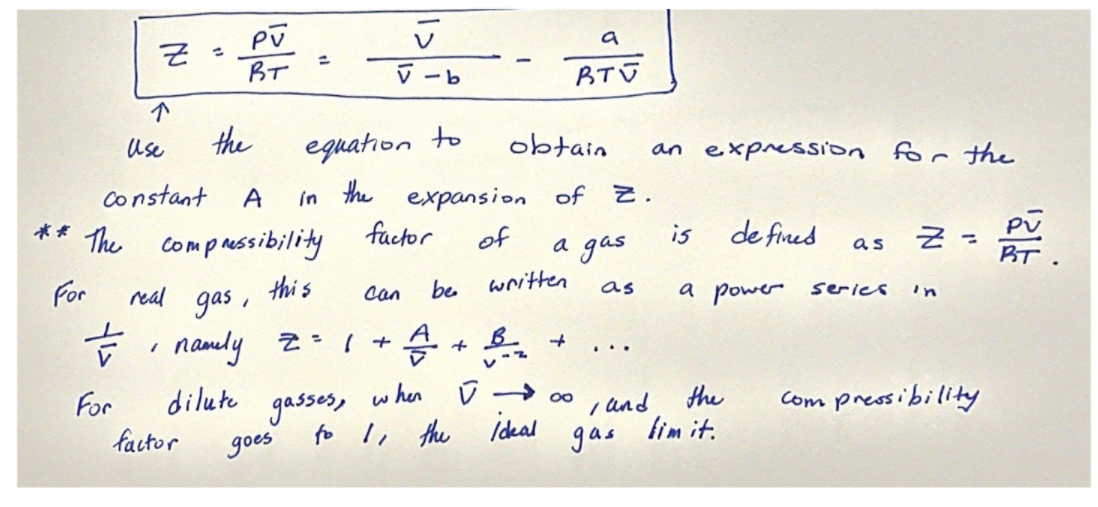 Z = PV̄/RT = V̄/(V̄ - b) - a/(RTV̄)
↑
Use the equation to obtain an expression for the
constant A in the expansion of Z.
** The compressibility factor of a gas is defined as Z = PV̄/RT.
For real gas, this can be written as a power series in
1/V̄, namely Z = 1 + A/V̄ + B/V^-2 + ...
For dilute gasses, when V̄ → ∞, and the compressibility
factor goes to 1, the ideal gas limit.